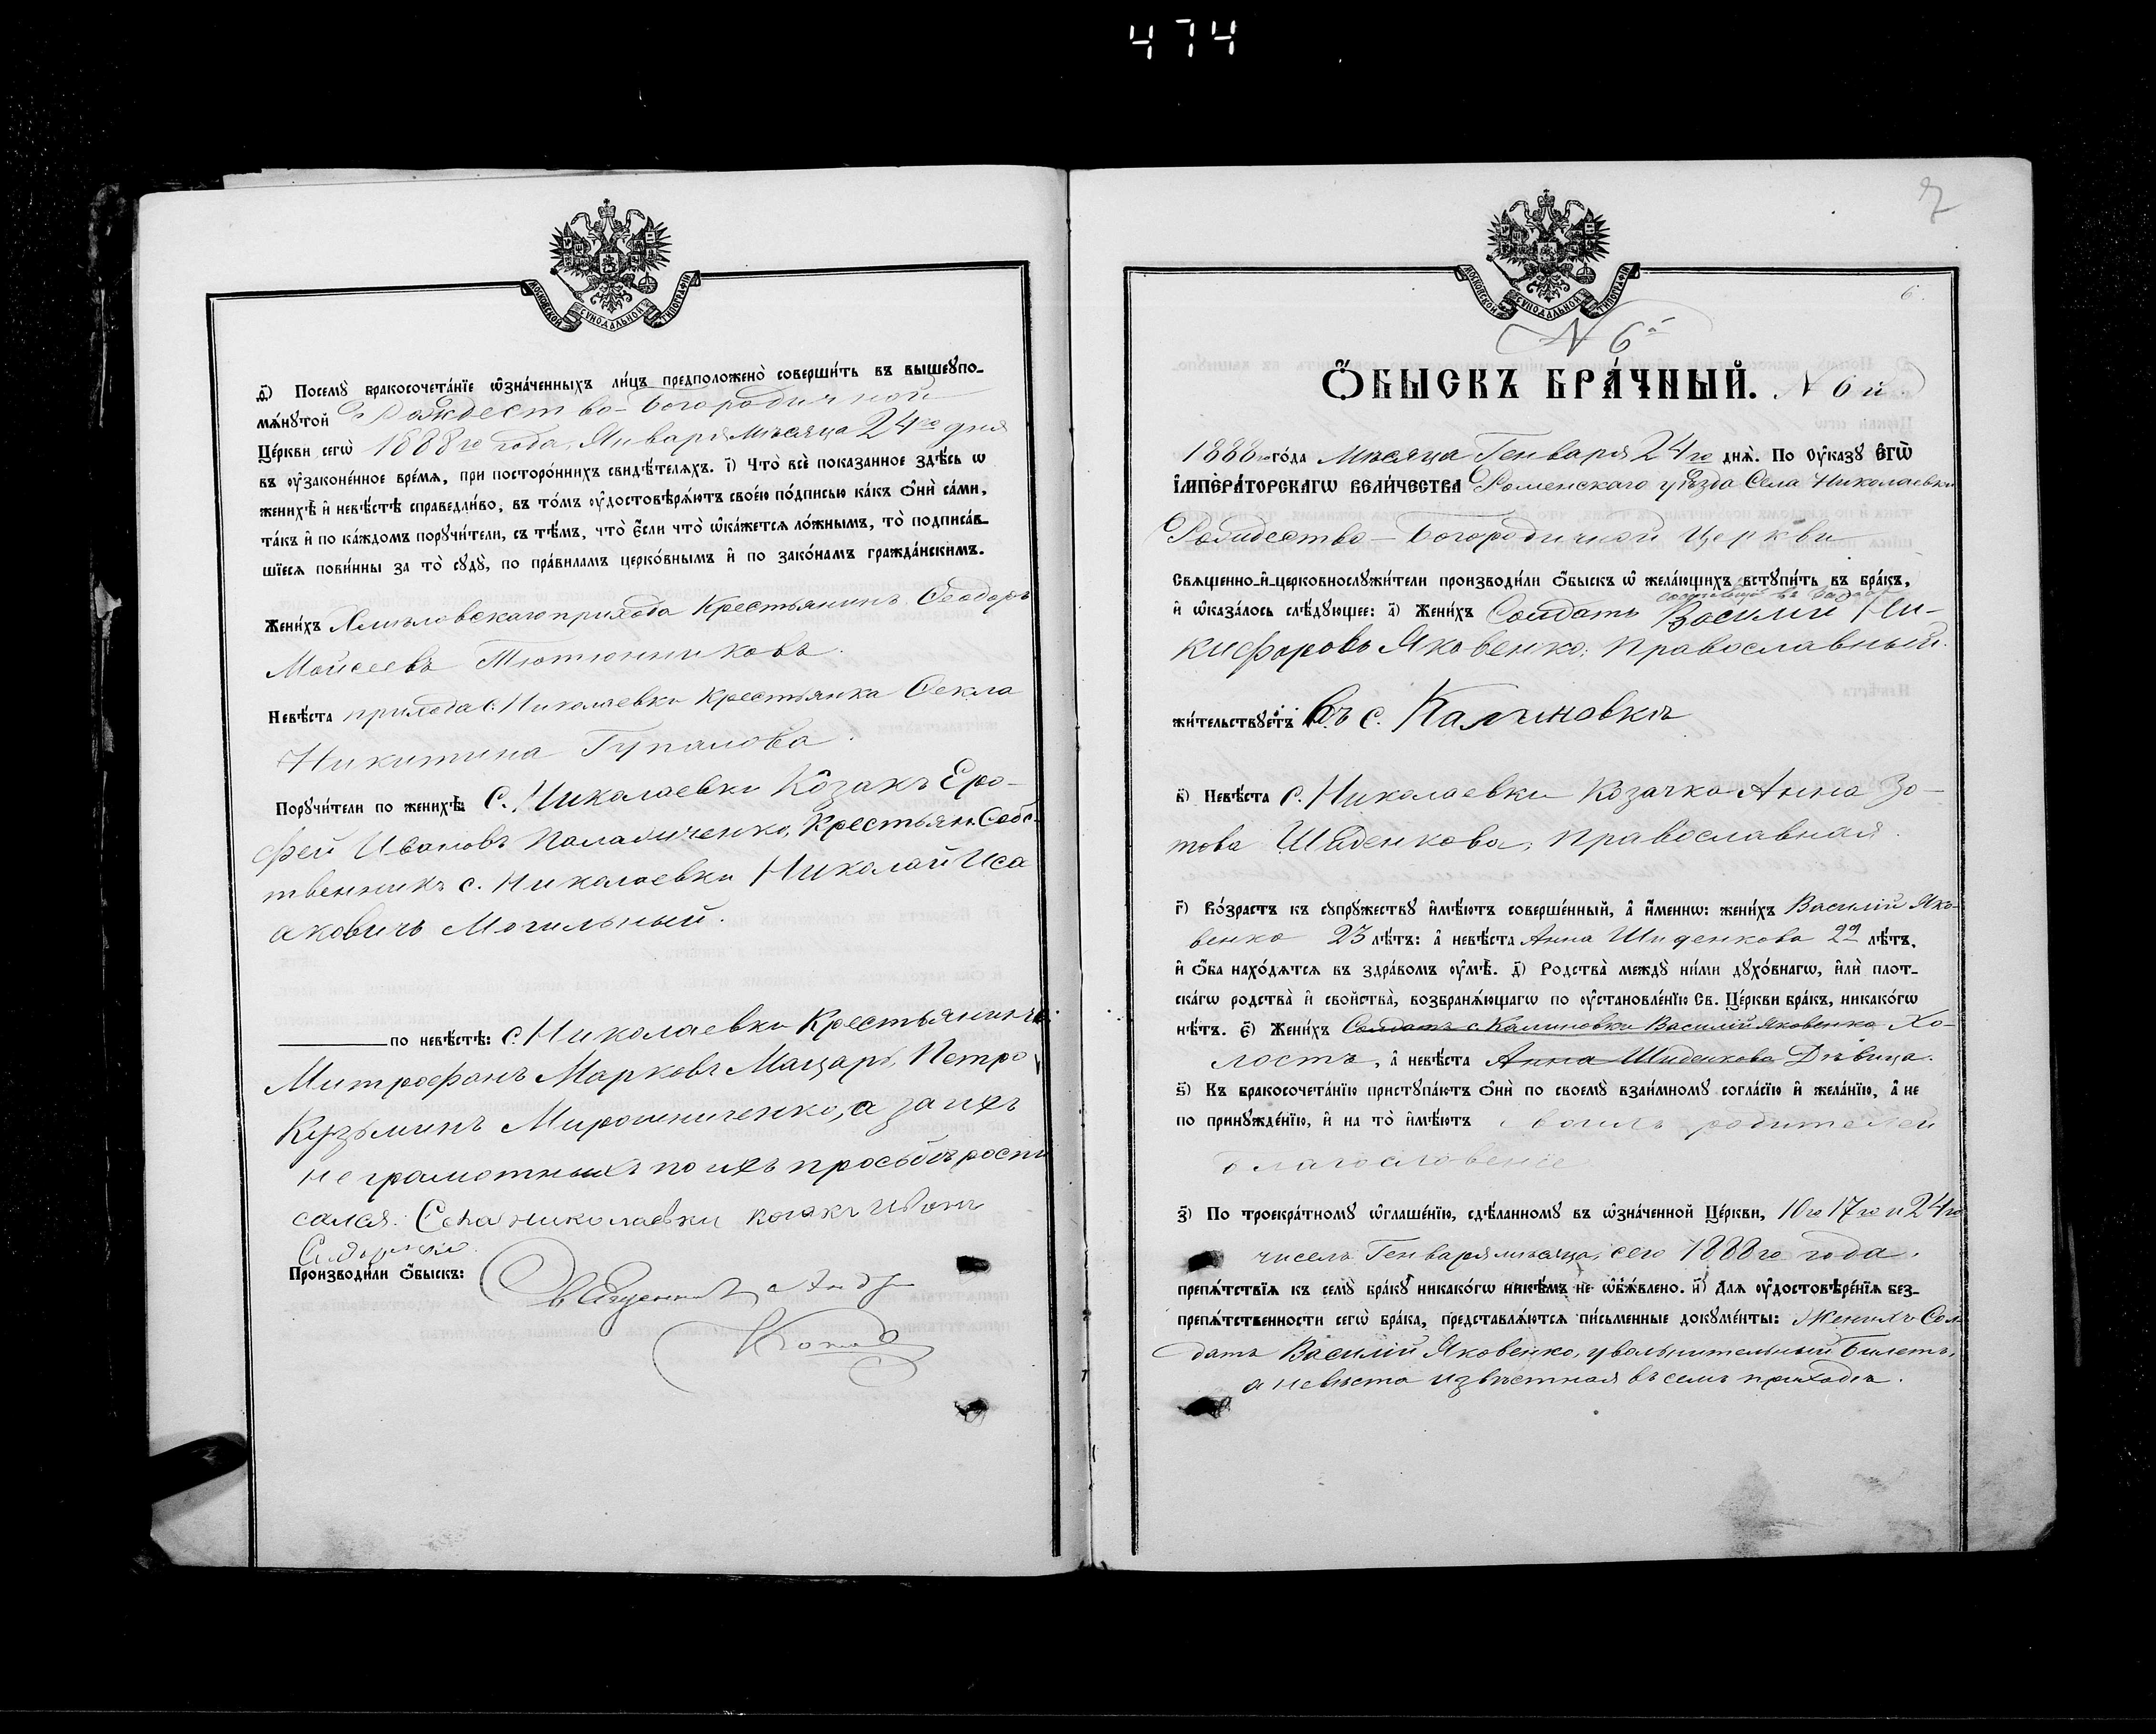 474
МОСКОВСКОЙ СУНОДАЛЬНОЙ ТИПОГРАФІИ
д҃) Посемꙋ̀ бракосочета́нїе ѡ҆зна́ченныхъ ли́цъ предположено̀ соверши́ть въ вышеꙋпо-
мѧ́нꙋтой Рождество-Богородичной
Це́ркви сегѡ̀ 1888го года, Января мѣсяца 24го дня
въ ѹ҆зако́ненное вре́мѧ, при посторо́ннихъ свидѣ́телѧхъ. і҃) Что̀ всѐ показанное здѣ́сь ѡ
женихѣ̀ и҆ невѣ́стѣ справедли́во, въ то́мъ ѹ҆достовѣрѧ́ютъ свое́ю по́дписью ка́къ ѻ҆нѝ са́ми,
та́къ и҆ по ка́ждомъ порꙋчи́тели, съ тѣ́мъ, что̀ є҆́сли что̀ ѡ҆ка́жетсѧ ло́жнымъ, то̀ подписа́в-
шїесѧ пови́нны за то̀ сꙋдꙋ̀, по пра́виламъ церко́внымъ и҆ по зако́намъ гражда́нскимъ.
Жени́хъ прихода Крестьянинъ Ѳеодоръ
Моисеевъ Тютюнниковъ.
Невѣ́ста прихода с. Николаевки Крестьянка Ѳекла
Никитина Гупалова.
Порꙋчи́тели по женихѣ̀: С. Николаевки Козакъ Еро-
фей Ивановъ Паламаченко, Крестьян. Собс-
твенникъ с. Николаевки Николай Иса
аковичъ Могильный.
по невѣ́стѣ: с. Николаевки Крестьянинъ
Митрофанъ Марковъ Мацарь, Петро
Кузьминъ Мирошниченко, а за ихъ
неграмотныхъ по ихъ просьбѣ роспи
салея. Села николаевки козакъ Иванъ
Производи́ли ѻ҆́быскъ:
7
6.
МОСКОВСКОЙ СУНОДАЛЬНОЙ ТИПОГРАФІИ
N 6й
Ѻ҆́БЫСКЪ БРА́ЧНЫЙ. N 6й.
1888го го́да Мѣсяца Генваря 24го днѧ̀. По ѹ҆ка́зꙋ Є҆ГѠ̀
І҆МПЕРА́ТОРСКАГѠ ВЕЛИ́ЧЕСТВА Роменскаго уѣзда Села Николаевки
Рождество-Богородичной Церкви
Свѧще́нно-и҆-церковнослꙋжи́тели производи́ли ѻ҆́быскъ ѡ҆ жела́ющихъ встꙋпи́ть въ бра́къ,
и҆ ѡ҆каза́лось слѣ́дꙋющее: а҃) Жени́хъ Солдатъ Василій Ни-
кифоровъ Яковенко, Православный.
жи́тельствꙋетъ въ с. Калиновкѣ
в҃) Невѣ́ста с. Николаевки Козачка Анна Зо-
това Шиденкова, Православная.
г҃) Во́зрастъ къ сꙋпрꙋ́жествꙋ и҆мѣ́ютъ соверше́нный, а҆ и҆́меннѡ: жени́хъ Василій Яко-
венко 23 лѣ́тъ: а҆ невѣ́ста Анна Шиденкова 22 лѣ́тъ,
и҆ ѻ҆́ба нахо́дѧтсѧ въ здра́вомъ ѹ҆мѣ̀. д҃) Родства̀ междꙋ̀ ни́ми дꙋхо́внагѡ, и҆лѝ плот-
ска́гѡ родства̀ и҆ свойства̀, возбранѧ́ющагѡ по ѹ҆становле́нїю Св. Це́ркви бра́къ, никако́гѡ
нѣ́тъ. є҃) Жени́хъ Солдатъ с. Калиновки Василій Яковенко Хо-
лостъ, а҆ невѣ́ста Анна Шиденкова Дѣвица.
ѕ҃) Къ бракосочета́нїю пристꙋпа́ютъ ѻ҆нѝ по своемꙋ̀ взаи́мномꙋ согла́сїю и҆ жела́нїю, а҆ не
по принꙋжде́нїю, и҆ на то̀ и҆мѣ́ютъ своихъ родителей
благословеніе
з҃) По троекра́тномꙋ ѡ҆глаше́нїю, сдѣ́ланномꙋ въ ѡ҆зна́ченной Це́ркви, 10го 17го и 24го
чиселъ Генваря мѣсяца, сего 1888го года,
препѧ́тствїѧ къ семꙋ̀ бра́кꙋ никако́гѡ никѣ́мъ не ѡ҆б̾ѧ́влено. и҃) Длѧ ѹ҆достовѣре́нїѧ без-
препѧ́тственности сегѡ̀ бра́ка, представлѧ́ютсѧ пи́сьменные докꙋме́нты: Женихъ Сол-
датъ Василій Яковенко, увольнительный билетъ,
а невѣста извѣстная въ семъ приходѣ.